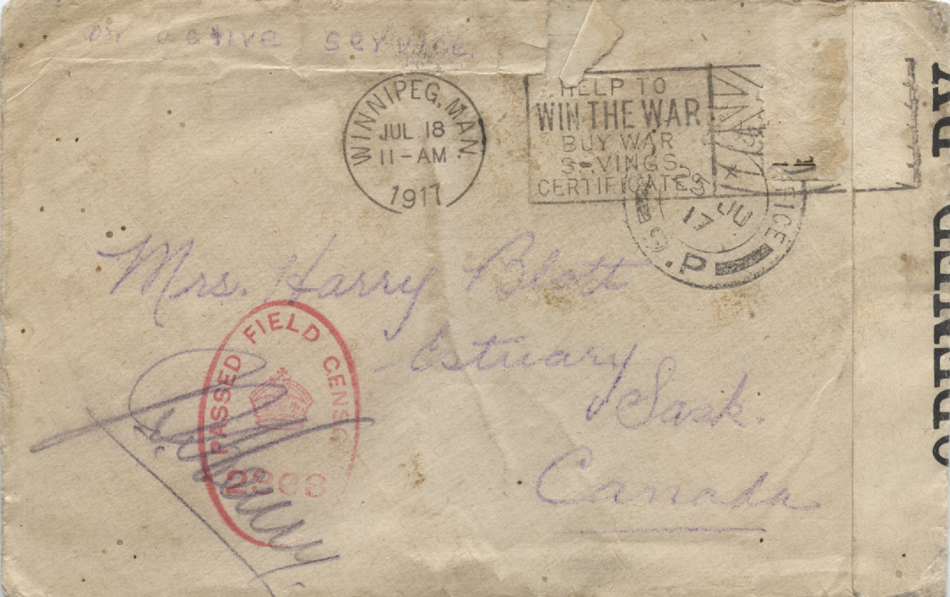 on active service
WINNIPEG, MAN.
JUL 18
11-AM
1917
HELP TO
WIN THE WAR
BUY WAR
SAVINGS
CERTIFICATES
JU
17
P
Mrs. Harry Blott
Estuary
Sask.
Canada
PASSED FIELD CENSOR
OPENED BY